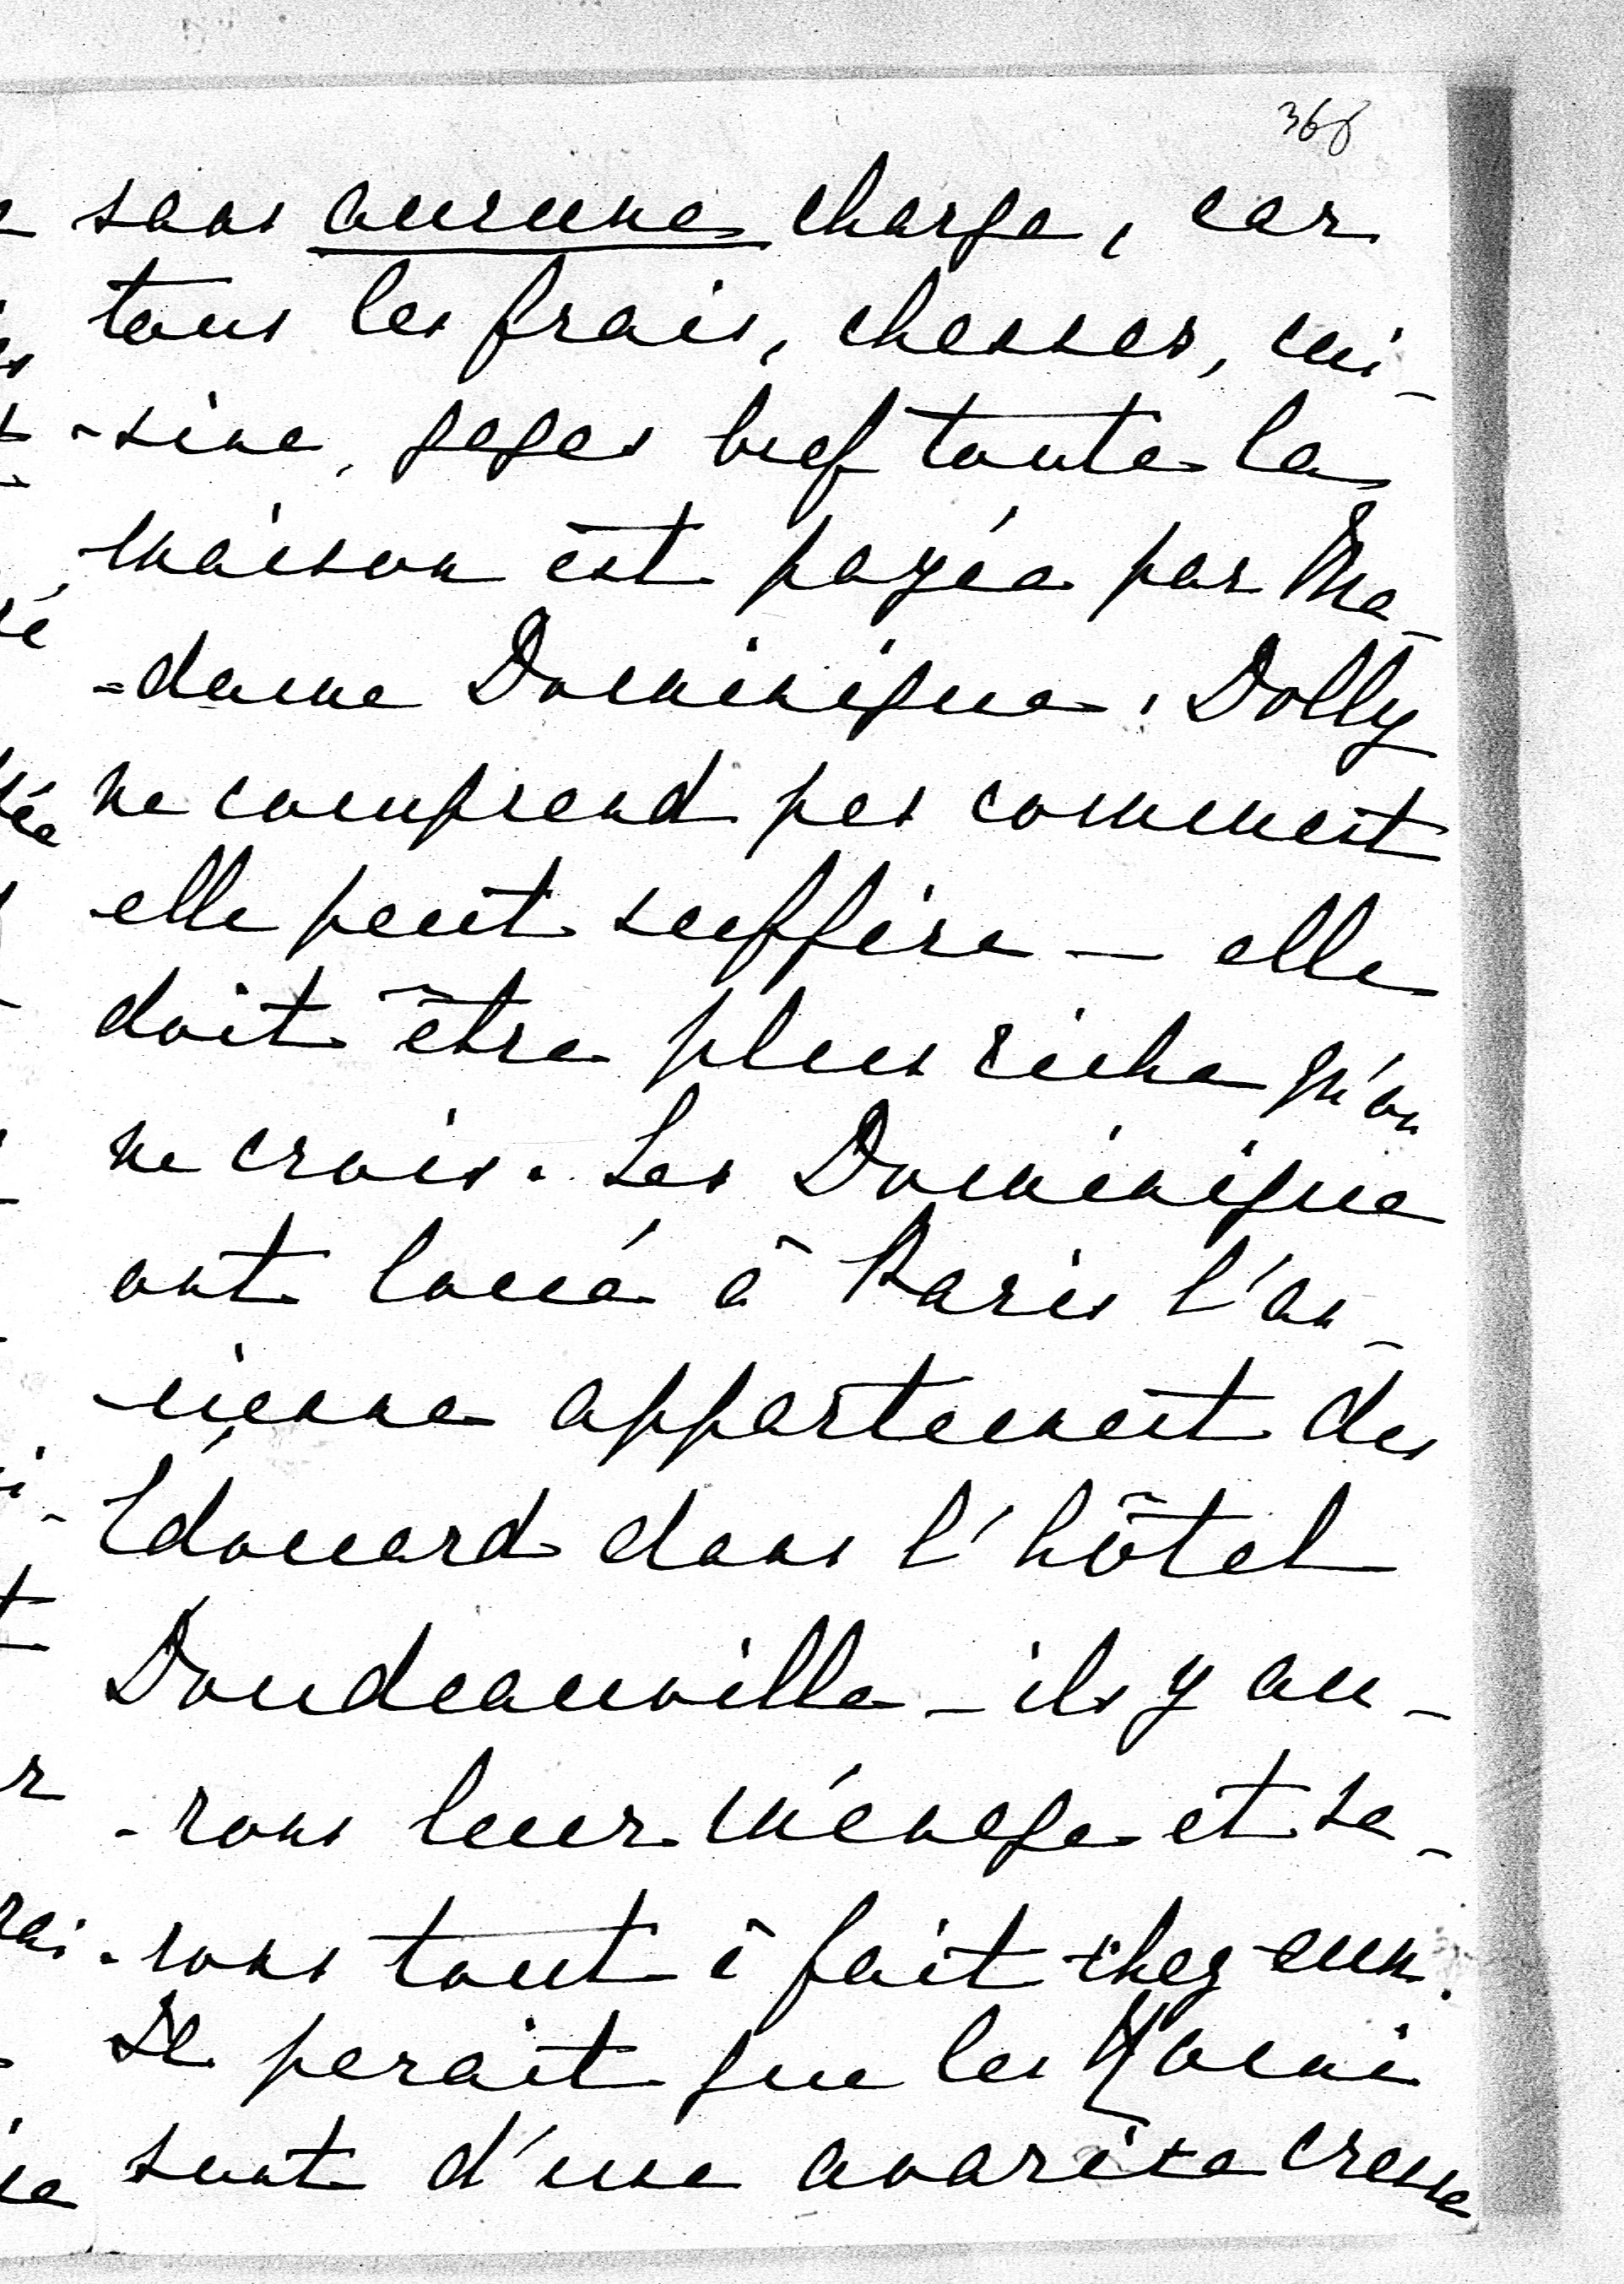 368
sans aucune charge, car
tous les frais, chasses, cui-
-sine, gages bref toute la
maison est payée par Ma-
-dame Dominique. Dolly
ne comprend pas comment
elle peut suffire — elle
doit être plus riche qu'on
ne crois. Les Dominique
ont loué à Paris l'an-
-cienne appartement des
Edouard dans l'hôtel
Doudeauville — ils y au-
-rons leur ménage et se-
-rons tout à fait chez eux.
Il parait que les
sont d'une avarice crasse